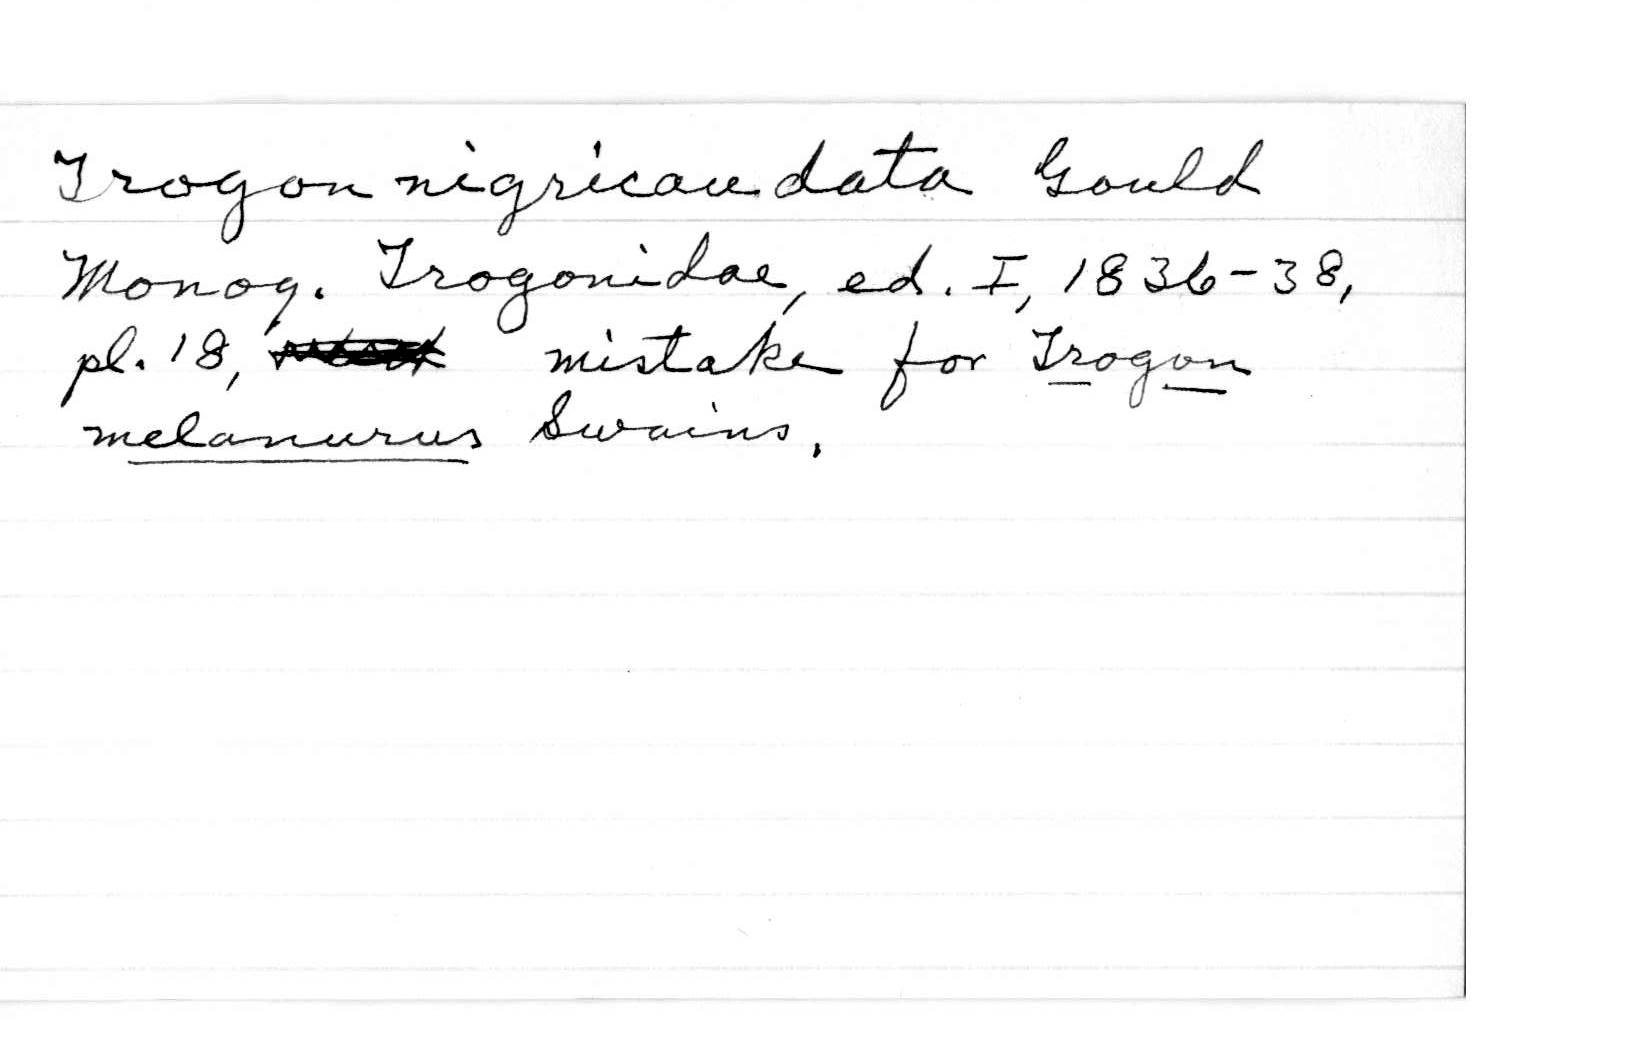 Trogon nigricaudata Gould
Monog. Trogonidae, ed. I, 1836-38,
pl. 18, mistake for Trogon
melanurus Swains.